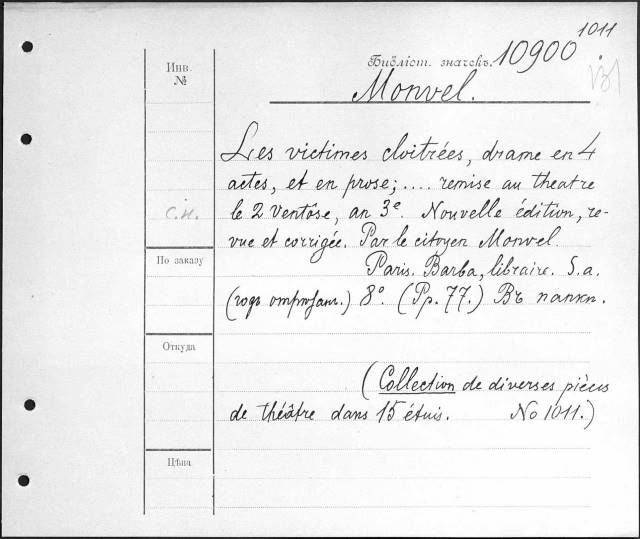 1011
Библіот. значекъ. 10900
Инв.
№
Monvel.
Les victimes cloitrées, drame en 4
actes, et en prose; .... remise au theatre
le 2 Ventôse, an 3e. Nouvelle édition, re-
с.н.
vue et corrigée. Par le citoyen Monvel.
По заказу
Paris. Barba, libraire. S.a.
(годъ отрѣзан.) 8°. (Pp. 77.) Въ папкѣ.
Откуда
(Collection de diverses pièces
de théâtre dans 15 étuis. No 1011.)
Цѣна